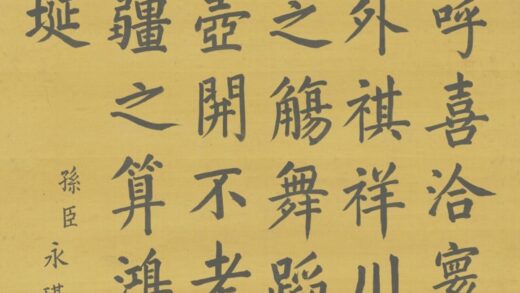 呼喜洽寰
外祺祥川
之觴舞蹈
壺開不老
疆之算鴻
埏
孫臣永琪